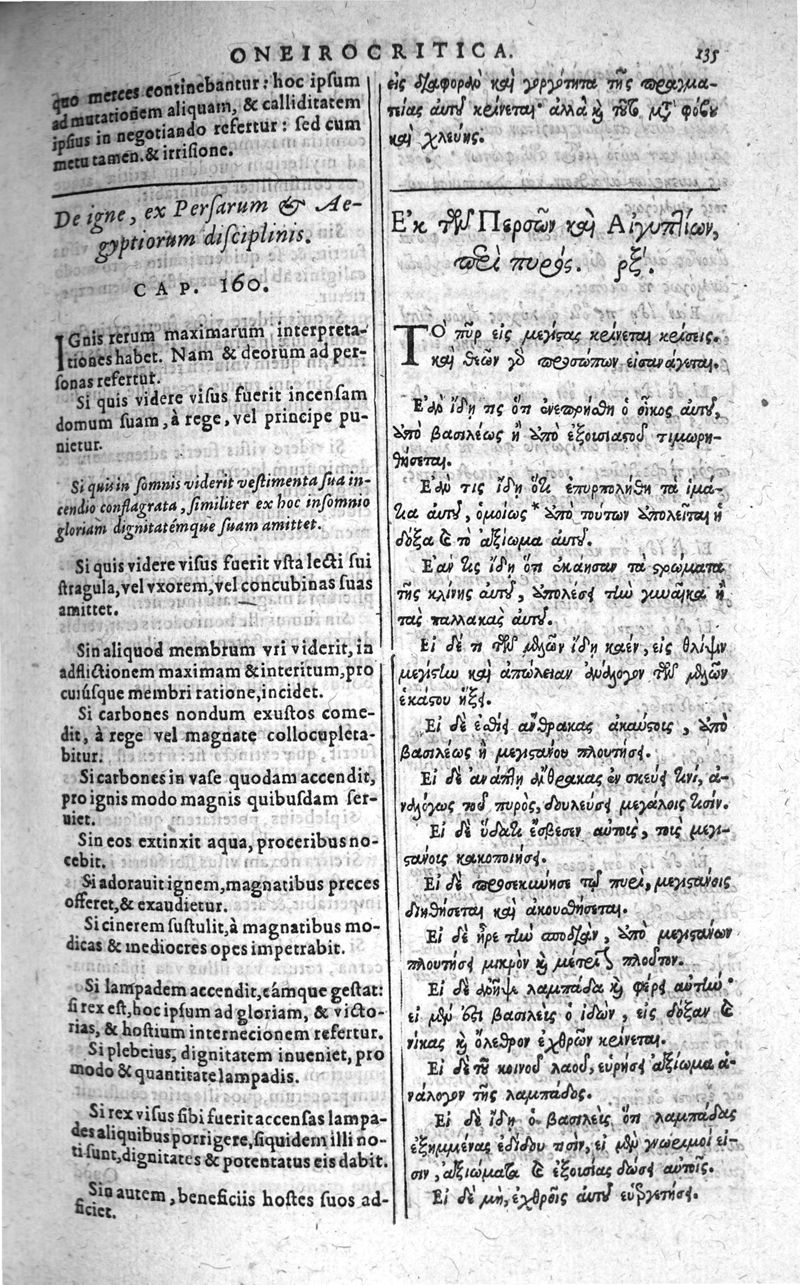 ONEIROCRITICA. 135
quo merces continebantur: hoc ipſum
ad mutationem aliquam, & calliditatem
ipſius in negotiando refertur: ſed cum
metu tamen. & irriſione.
De igne, ex Perſarum & Ae-
gyptiorum diſciplinis.
CAP. 160.
IGnis rerum maximarum interpreta-
tiones habet. Nam & deorum ad per-
ſonas refertur.
Si quis videre viſus fuerit incenſam
domum ſuam, à rege, vel principe pu-
nietur.
Si quis in ſomnis viderit veſtimenta ſua in-
cendio conflagrata, ſimiliter ex hoc inſomnio
gloriam dignitatémque ſuam amittet.
Si quis videre viſus fuerit vſta lecti ſui
ſtragula, vel vxorem, vel concubinas ſuas
amittet.
Sin aliquod membrum vri viderit, in
adflictionem maximam & interitum, pro
cuiúſque membri ratione, incidet.
Si carbones nondum exuſtos come-
dit, à rege vel magnate collocupleta-
bitur.
Si carbones in vaſe quodam accendit,
pro ignis modo magnis quibuſdam ſer-
uiet.
Sin eos extinxit aqua, proceribus no-
cebit.
Si adorauit ignem, magnatibus preces
offeret, & exaudietur.
Si cinerem ſuſtulit, à magnatibus mo-
dicas & mediocres opes impetrabit.
Si lampadem accendit, eámque geſtat:
ſi rex eſt, hoc ipſum ad gloriam, & victo-
rias, & hoſtium internecionem refertur.
Si plebeius, dignitatem inueniet, pro
modo & quantitate lampadis.
Si rex viſus ſibi fuerit accenſas lampa-
des aliquibus porrigere, ſiquidem illi no-
ti ſunt, dignitates & potentatus eis dabit.
Sin autem, beneficiis hoſtes ſuos ad-
ficiet.
εἰς διαφορὰν καὶ γοργότητα τῆς πραγμα-
τείας αὐτοῦ κρίνεται· ἀλλὰ καὶ τοῦτο μετὰ φόβου
καὶ χλεύης.
Ἐκ τῶν Περσῶν καὶ Αἰγυπτίων,
περὶ πυρός. ρξʹ.
ΤΟ πῦρ εἰς μεγίστας κρίνεται κρίσεις.
καὶ θεῶν γὸ προσώπων εἰσανάγεται.
Ἐὰν ἴδῃ τις ὅτι ἀνεπρήσθη ὁ οἶκος αὐτοῦ,
ὑπὸ βασιλέως ἢ ὑπὸ ἐξουσιαστοῦ τιμωρη-
θήσεται.
Ἐὰν τις ἴδῃ ὅτι ἐπυρπολήθη τὰ ἱμά-
τια αὐτοῦ, ὁμοίως * ὑπὸ τούτων ὑπολεῖται ἡ
δόξα καὶ τὸ ἀξίωμα αὐτοῦ.
Ἐάν τις ἴδῃ ὅτι ἐκάησαν τὰ στρώματα
τῆς κλίνης αὐτοῦ, ἀπολέσει τὴν γυναῖκα ἢ
τὰς παλλακὰς αὐτοῦ.
Εἰ δέ τι τῶν μελῶν ἴδῃ καέν, εἰς θλίψιν
μεγίστην καὶ ἀπώλειαν ἀνάλογον τῶν μελῶν
ἑκάστου ἥξει.
Εἰ δὲ ἐσθίει ἄνθρακας ἀκαύστοις, ὑπὸ
βασιλέως ἢ μεγιστάνου πλουτήσει.
Εἰ δὲ ἀνάπτῃ ἄνθρακας ἐν σκεύει τινί, ἀ-
ναλόγως τοῦ πυρὸς, δουλεύσει μεγάλοις τισίν.
Εἰ δὲ ὕδατι ἔσβεσεν αὐτοὺς, τοὺς μεγι-
στάνοις κακοποιήσει.
Εἰ δὲ προσεκύνησε τῷ πυρὶ, μεγιστάνοις
δεηθήσεται καὶ ἀκουσθήσεται.
Εἰ δὲ ἦρε τὴν σποδιὰν, ὑπὸ μεγιστάνων
πλουτήσει μικρὸν καὶ μέτριον πλοῦτον.
Εἰ δὲ ἀνῆψε λαμπάδα καὶ φέρει αὐτὴν·
εἰ μὲν ἐστι βασιλεὺς ὁ ἰδὼν, εἰς δόξαν καὶ
νίκας καὶ ὄλεθρον ἐχθρῶν κρίνεται.
Εἰ δὲ τοῦ κοινοῦ λαοῦ, εὑρήσει ἀξίωμα ἀ-
νάλογον τῆς λαμπάδος.
Εἰ δὲ ἴδῃ ὁ βασιλεὺς ὅτι λαμπάδας
ἐξημμένας ἐδίδου τισὶν, εἰ μὲν γνώριμοί εἰ-
σιν, ἀξιώματα καὶ ἐξουσίας δώσει αὐτοῖς.
Εἰ δὲ μὴ, ἐχθροὺς αὐτοῦ εὐεργετήσει.